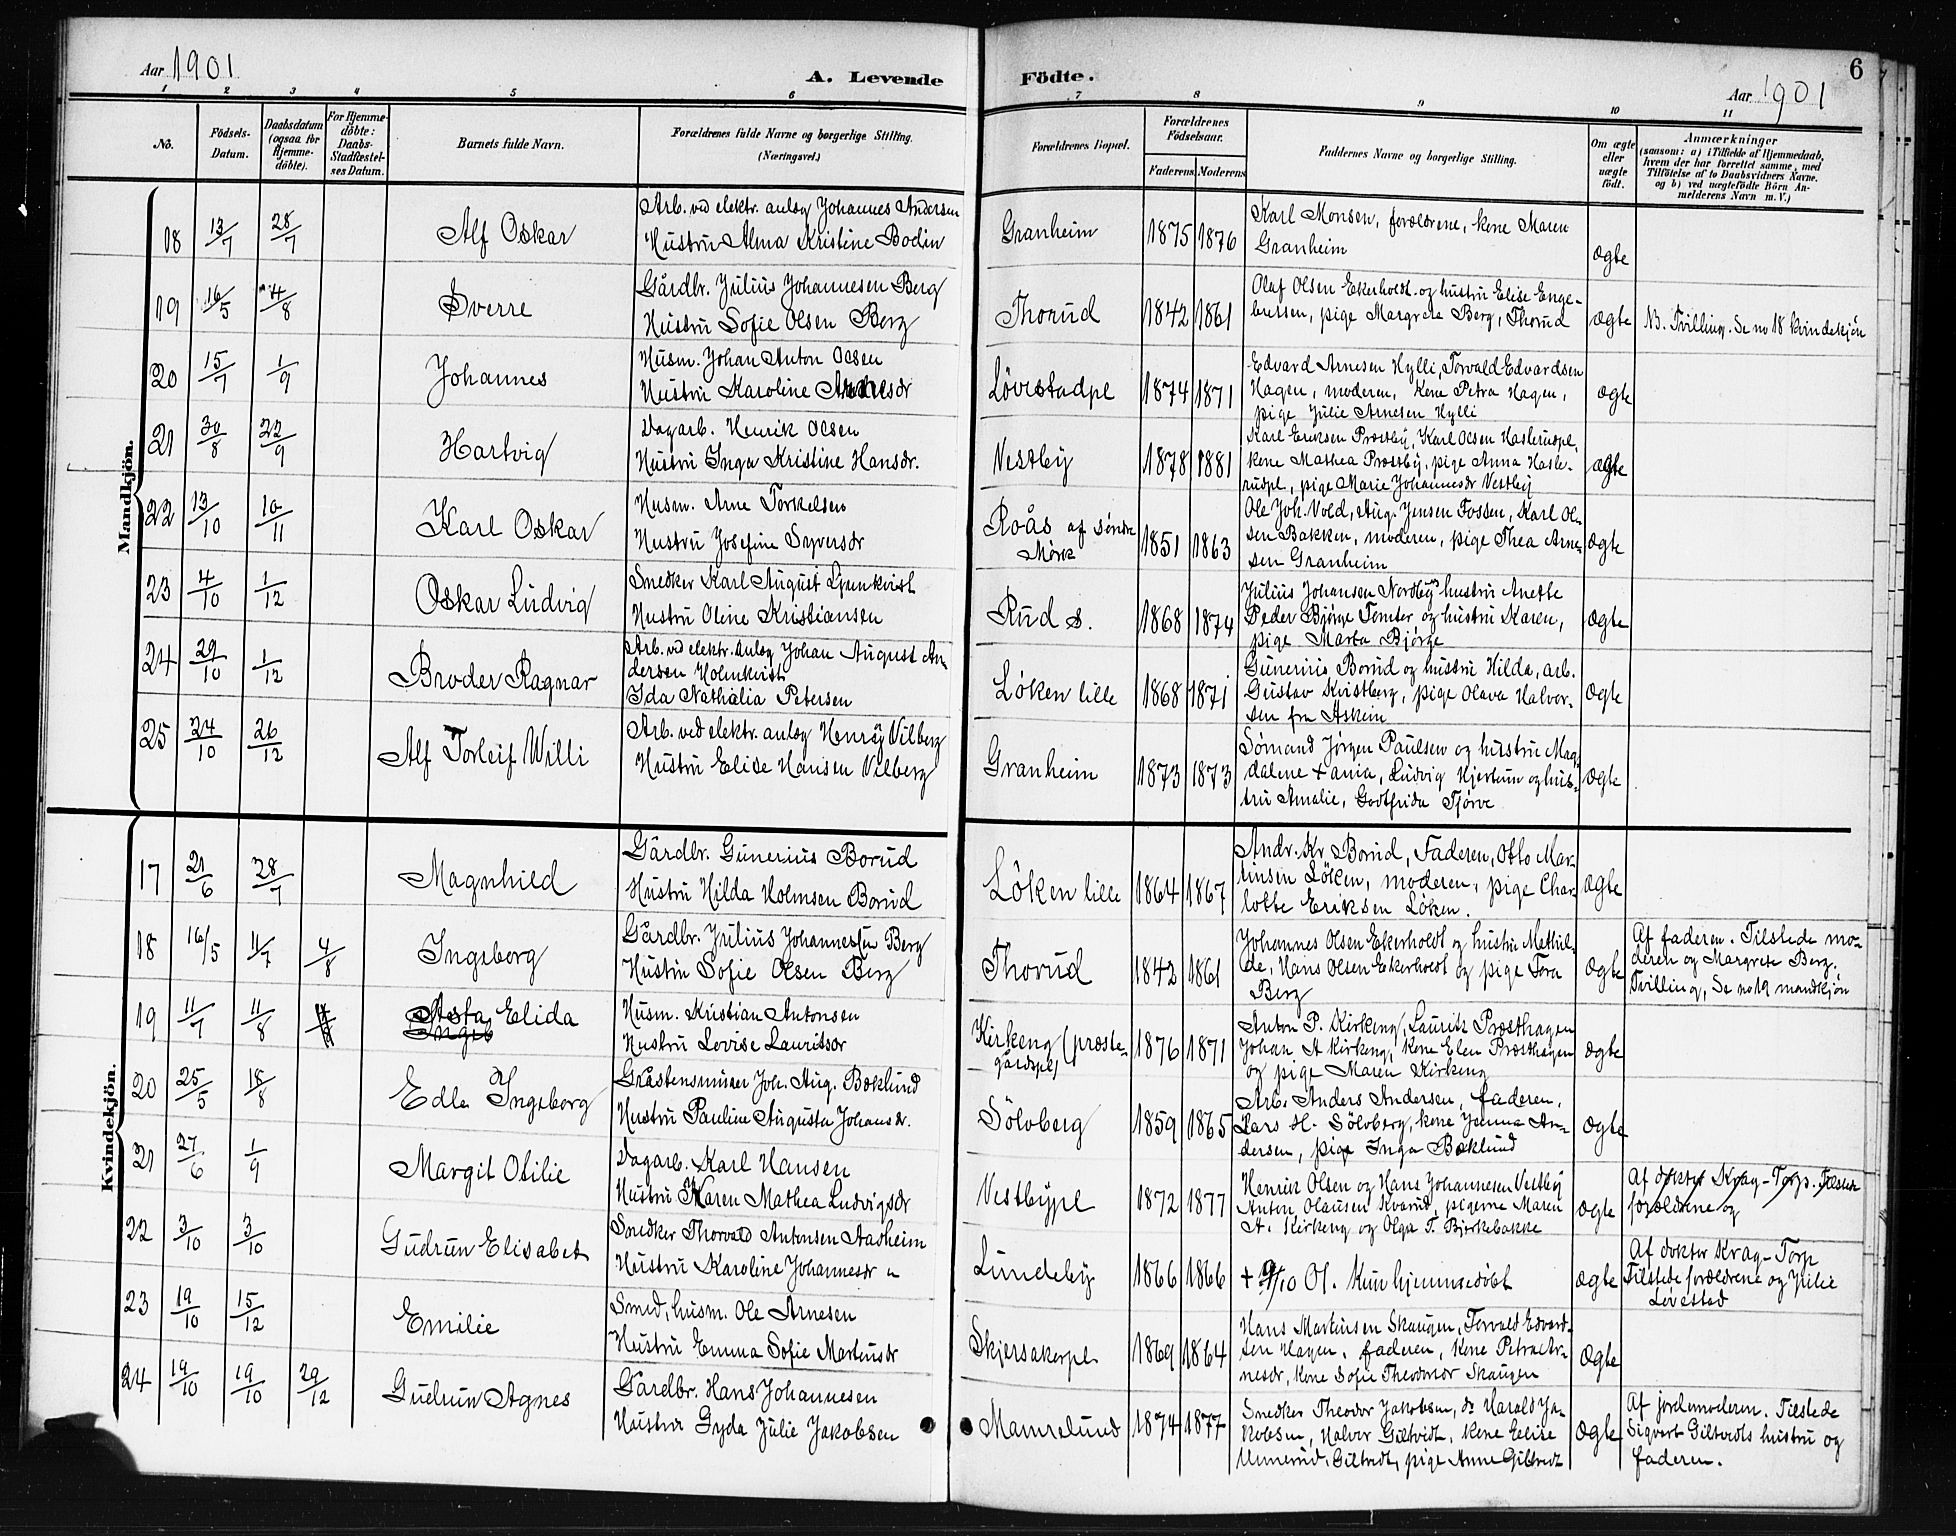 Aar 1901
A. Levende Födte.
6
Aar 1901
1 2 3 4 5 6 7 8 9 10 11
No.
Födsels-
Datum.
Daabsdatum
(ogsaa for
Hjemme-
döbte).
For Hjemme-
döbte:
Daabs-
Stadfæstel-
ses Datum.
Barnets fulde Navn.
Forældrenes fulde Navne og borgerlige Stilling.
(Næringsvei.)
Forældrenes Bopæl.
Forældrenes
Födselsaar.
Faderens Moderens
Faddernes Navne og borgerlige Stilling.
Om ægte
eller
uægte
födt.
Anmærkninger
(saasom: a) i Tilfælde af Hjemmedaab,
hvem der har forrettet samme, med
Tilföielse af to Daabsvidners Navne.
og b) ved uægtefödte Börn An-
melderens Navn m. V.)
Mandkjön.
18 13/7 28/7 Alf Oskar
Arb. ved elektr. anlæg Johannes Andersen
Hustru Alma Kristine Bodin
Granheim 1875 1876
Karl Monsen, forældrene, kone Maren
Granheim
ægte
19 16/5 4/8 Sverre
Gårdbr. Julius Johannesen Berg
Hustru Sofie Olsen Berg
Thorud 1842 1861
Olaf Olsen Ekerholdt og hustru Elise Enge-
bretsen, pige Margrete Berg, Thorud
ægte
NB. Tvilling. Se no 18 kvindekjön
20 15/7 1/9 Johannes
Husm. Johan Anton Olsen
Hustru Karoline
Lövestadpl 1874 1871
Edvard Arnesen Hylli, Torvald Edvardsen
Hagen, moderen, Kone Petra Hagen,
pige Julie Arnesen Hylli
ægte
21 30/8 22/9 Hartvig
Dagarb. Henrik Olsen
Hustru Inga Kristine Hansdr.
Vestby 1878 1881
Karl Eriksen Præstby, Karl Olsen Haslerudpl,
kone Mathea Præstby, pige Anna Hasle-
rudpl, pige Marie Johannesdr Vestby
ægte
22 13/10 10/11 Karl Oskar
Husm. Arne Torkelsen
Hustru Josefine Syversdr
Roås af söndre
Mörk
1851 1863
Ole Joh. Vold, Aug. Jensen Fossen, Karl Ol-
sen Bakken, moderen, pige Thea Arne-
sen Granheim
ægte
23 4/10 1/12 Oskar Ludvig
Snedker Karl August
Hustru Oline Kristiansen
Rud s. 1868 1874
Julius Johansen Nordby og hustru Anette
Peder Björge Tomter og hustru Karen,
pige Marta Björge
ægte
24 29/10 1/12 Broder Ragnar
Arb. ved elektr. anlæg Johan August An-
dersen Holmkvist
Ida Nathalia Petersen
Löken lille 1868 1871
Gunerius Borud og hustru Hilda, arb.
Gustav Kvistberg, pige Olava Halvor-
sen fra Askim
ægte
25 24/10 26/12 Alf Torleif Willi
Arb. ved elektr. anlæg Henrÿ Vilberg
Hustru Elise Hansen Vilberg
Granheim 1873 1873
Sömand Jörgen Paulsen og hustru Mag-
dalene, Ludvig Hjertum og hus-
tru Amalie, Godtfrida Tjörve
ægte
Kvindekjön.
17 21/6 28/7 Magnhild
Gårdbr. Gunerius Borud
Hustru Hilda Holmsen Borud
Löken lille 1864 1867
Andr. Kr. Borud, Faderen, Otto Mar-
tinsen Löken, moderen, pige Char-
lotte Eriksen Löken.
ægte
18 16/5 11/7 4/8 Ingeborg
Gårdbr. Julius Johannesen Berg
Hustru Sofie Olsen Berg
Thorud 1842 1861
Johannes Olsen Ekerholdt og hustru Mathil-
de, Hans Olsen Ekerholdt og pige Tora
Berg
ægte
Af faderen. Tilstede mo-
deren og Margrete Berg.
Tvilling, Se no 19 mandkjön
19 11/7 11/8 Asta Elida
Husm. Kristian Antonsen
Hustru Lovise Lauritsdr
Kirkeng (præste-
gårdspl)
1876 1871
Anton P. Kirkeng, Lauritz Præsthagen
Johan A Kirkeng, kone Elen Præsthagen
og pige Maren Kirkeng
ægte
20 25/5 18/8 Edle Ingeborg
Gråstensminer Joh. Aug. Bæklund
Hustru Pauline Augusta Johansdr.
Sölvberg 1859 1865
Arb. Anders Andersen, faderen,
Lars H. Sölvberg, kone Jenna An-
dersen, pige Inga Bæklund
ægte
21 27/6 1/9 Margit Otilie
Dagarb. Karl Hansen
Hustru Karen Mathea Ludvigsdr
Vestbypl 1872 1877
Henrik Olsen og Hans Johannesen Vestby
Anton Olausen Kvarud, pigerne Maren
A. Kirkeng og Olga T. Bjerkebakke
ægte
Af dokter Krag-Torp. Tilstede
forældrene og
22 3/10 3/10 Gudrun Elisabet
Snedker Thorvald Antonsen Aasheim
Hustru Karoline Johannesdr "
Lundeby 1866 1866
+ 9/10 01. Kun hjemmedöbt
ægte
Af dokter Krag-Torp
Tilstede forældrene og Julie
Lövestad
23 19/10 15/12 Emilie
Smed, husm. Ole Arnesen
Hustru Emma Sofie Martinsdr
Skjersakerpl 1869 1864
Hans Martinsen Skaugen, Torvald Edvard-
sen Hagen, faderen, kone Petra Ar-
nesdr, kone Sofie Theodorsdr Skaugen
ægte
24 19/10 19/10 29/12 Gudrun Agnes
Gårdbr. Hans Johannesen
Hustru Gyda Julie Jakobsen
Mamrelund 1874 1877
Snedker Theodor Jakobsen, do Harald Ja-
kobsen, Halvor Giltvedt, kone Elise
Unnerud, Giltvedt, pige Anne Giltvedt
ægte
Af jordemoderen. Tilstede
Sigvart Giltvedts hustru og
faderen.